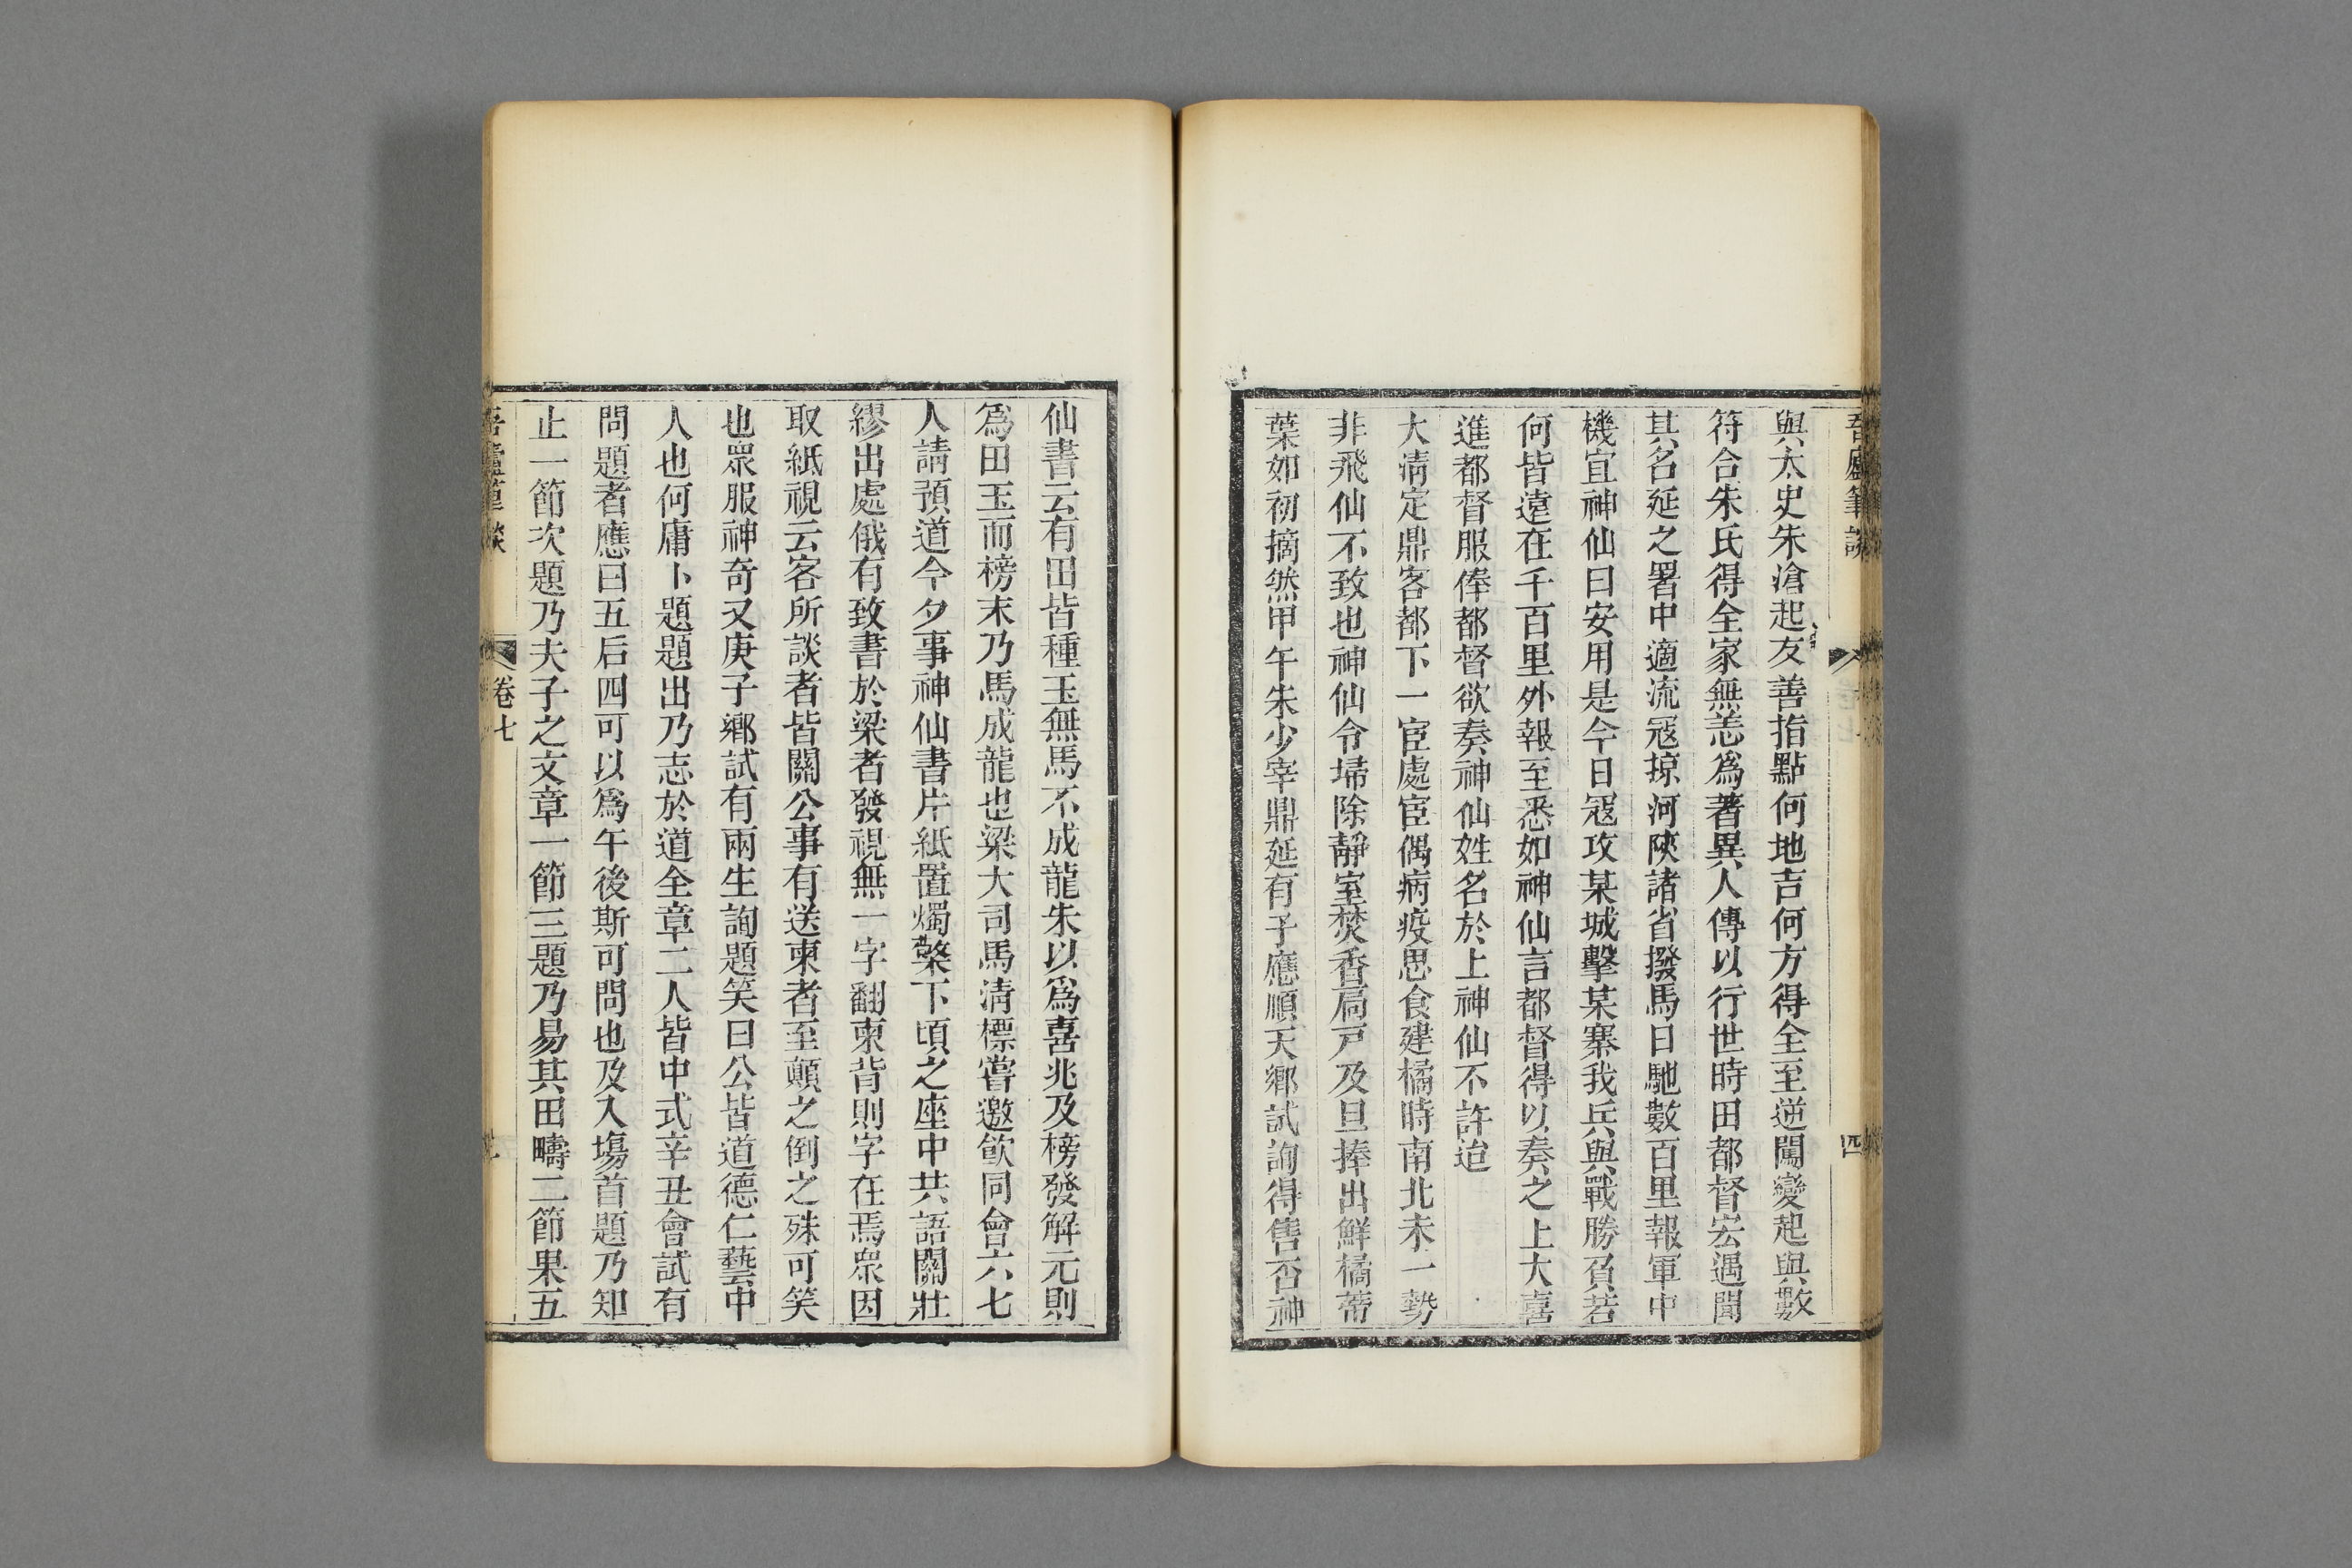 吾廬筆談
四
與太史朱滄起友善指點何地吉何方得全至逆闖變起與數
符合朱氏得全家無恙爲著異人傳以行世時田都督宏遇聞
其名延之署中適流寇掠河陝諸省撥馬日馳數百里報軍中
機宜神仙曰安用是今日寇攻某城擊某寨我兵與戰勝負若
何皆遠在千百里外報至悉如神仙言都督得以奏之上大喜
進都督服俸都督欲奏神仙姓名於上神仙不許迨
大清定鼎客都下一宦處宦偶病疫思食建橘時南北未一勢
非飛仙不致也神仙令埽除靜室焚香扃戸及旦捧出鮮橘蒂
葉如初摘然甲午朱少宰鼎延有子應順天鄉試詢得售否神
仙書云有田皆種玉無馬不成龍朱以爲喜兆及榜發解元則
爲田玉而榜末乃馬成龍也梁大司馬清標嘗邀飮同會六七
人請預道今夕事神仙書片紙置燭檠下頃之座中共語關壯
繆出處俄有致書於梁者發視無一字翻柬背則字在焉眾因
取紙視云客所談者皆關公事有送柬者至顛之倒之殊可笑
也眾服神奇又庚子鄉試有兩生詢題笑曰公皆道德仁藝中
人也何庸卜題題出乃志於道全章二人皆中式辛丑會試有
問題者應曰五后四可以爲午後斯可問也及入塲首題乃知
止一節次題乃夫子之文章一節三題乃易其田疇二節果五
吾廬筆談
卷七